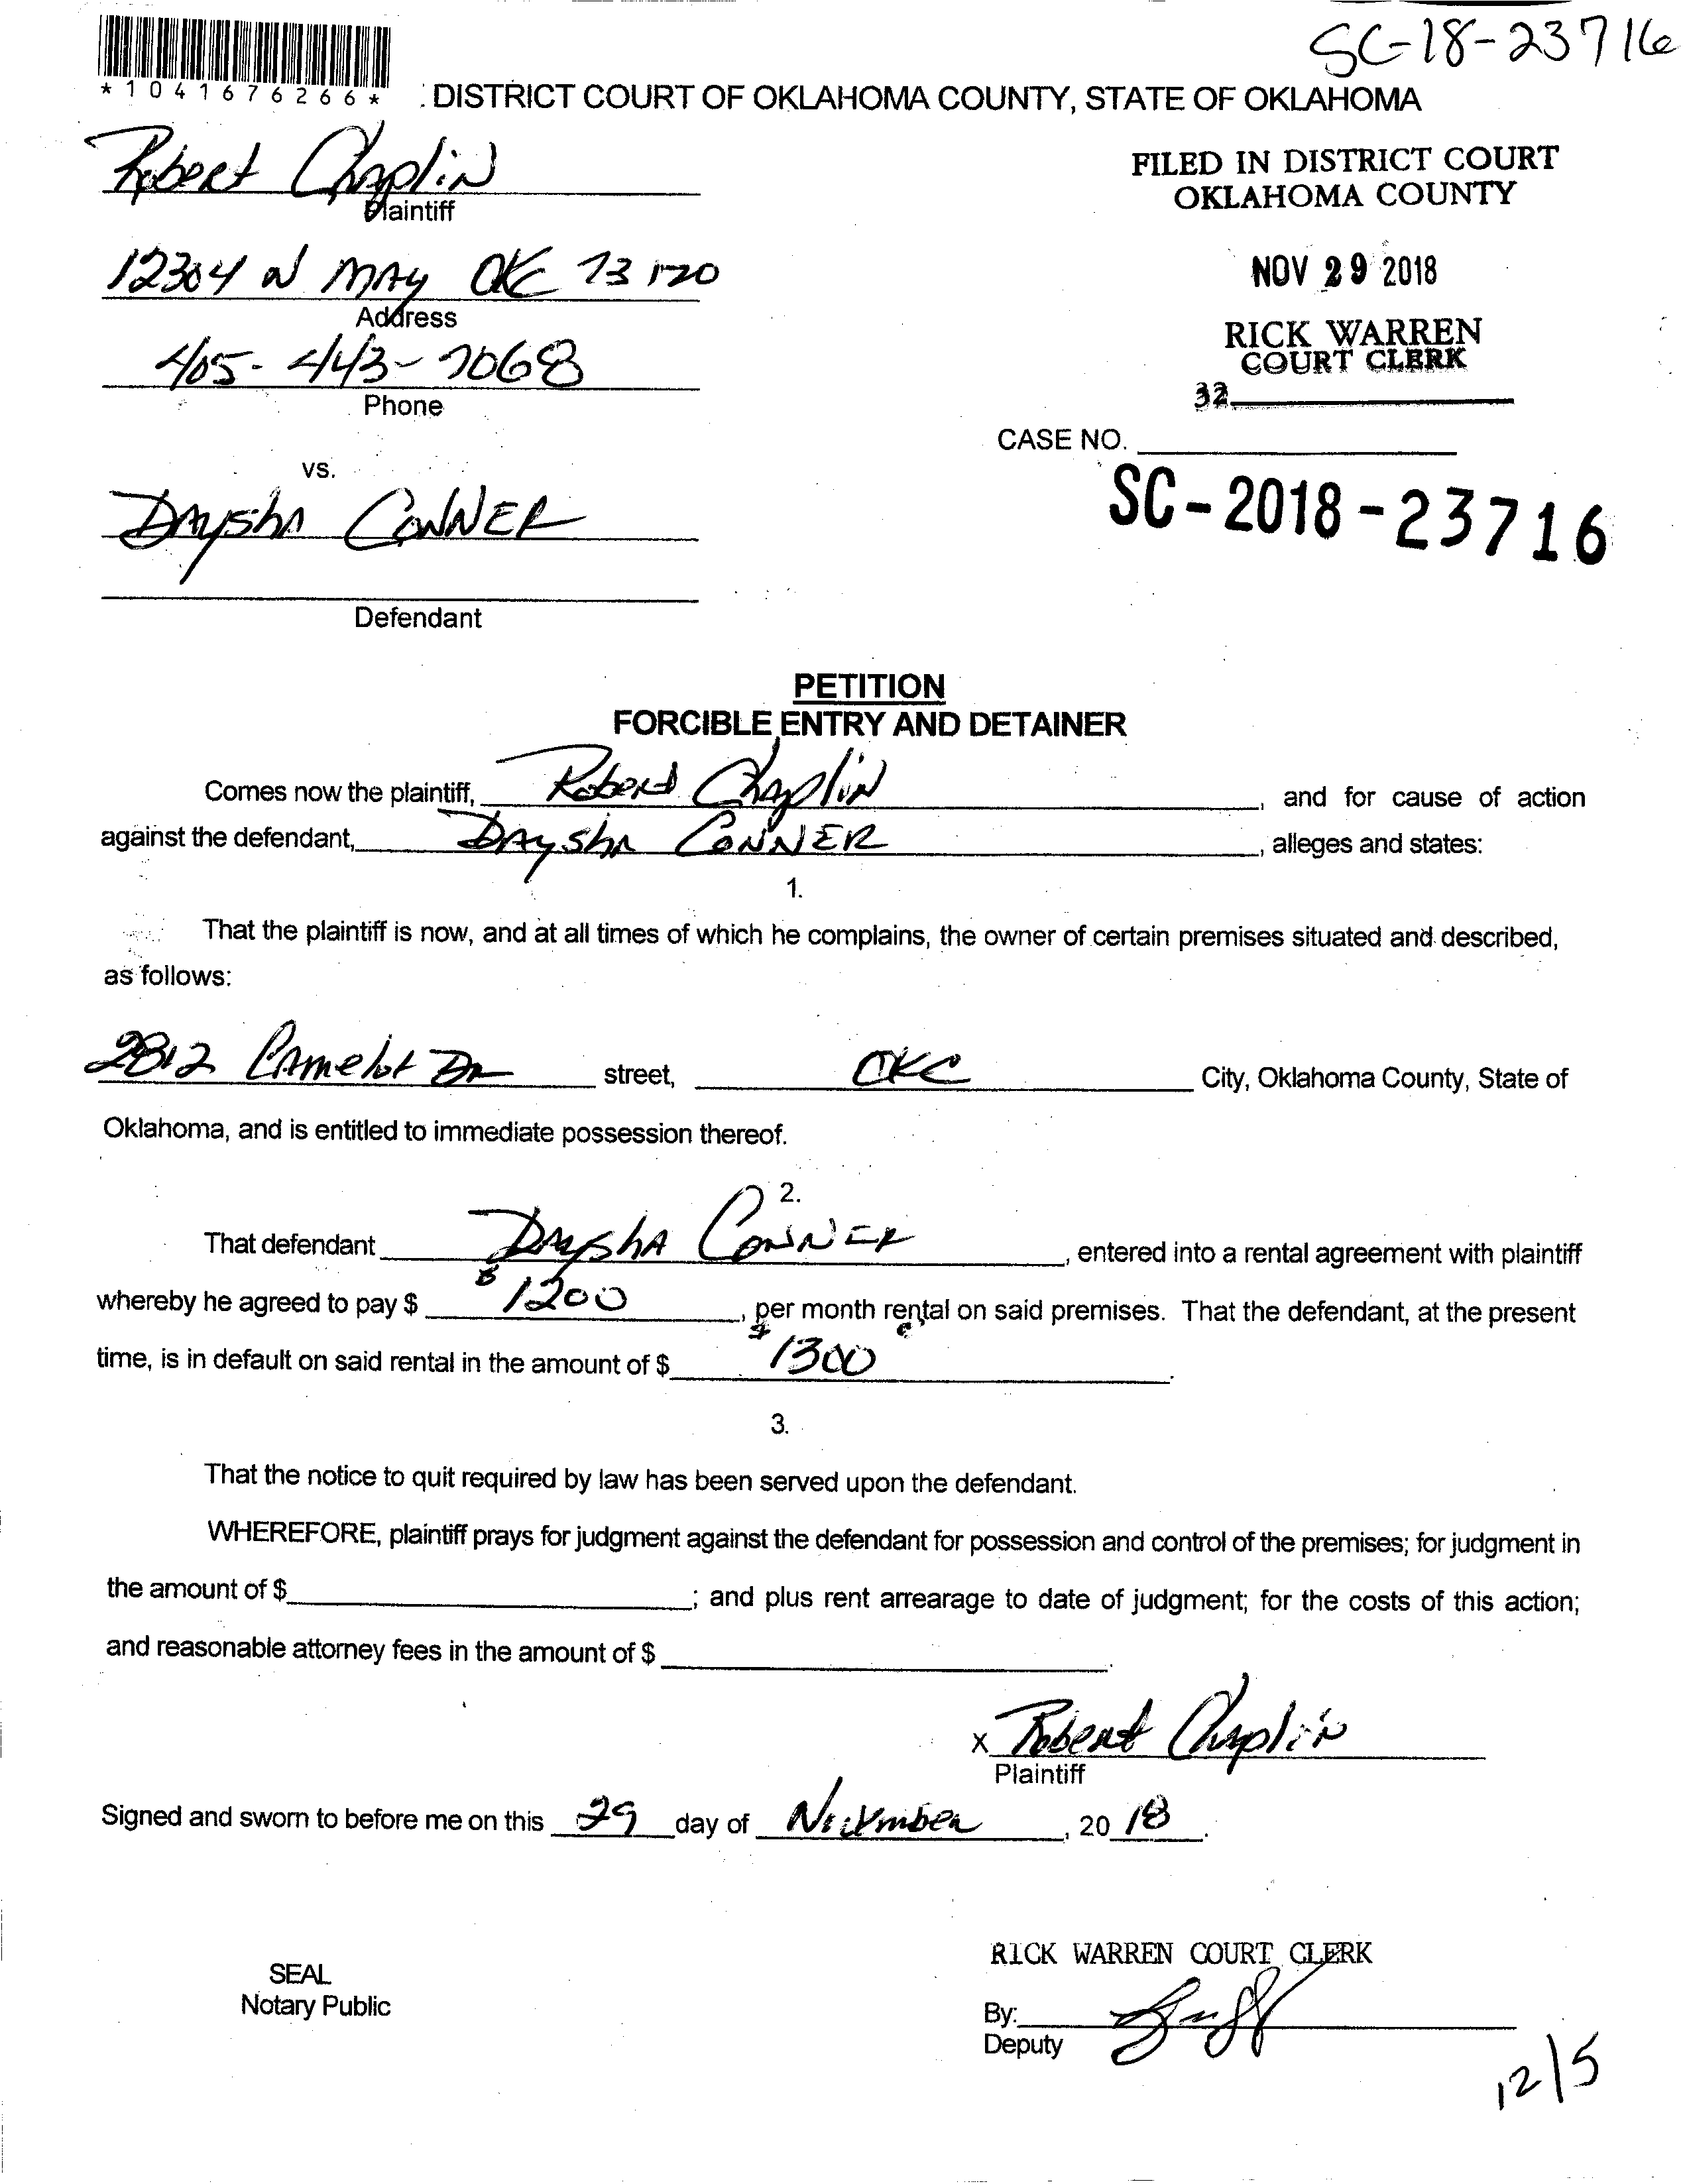 SC-18-23716
*1041676266*
DISTRICT COURT OF OKLAHOMA COUNTY, STATE OF OKLAHOMA
Robert Chaplin
Plaintiff
FILED IN DISTRICT COURT
OKLAHOMA COUNTY
12304 N MAY OKC 73120
Address
NOV 29 2018
405-443-7068
Phone
RICK WARREN
COURT CLERK
32
CASE NO.
vs.
SC-2018-23716
DAyshA CONNER
Defendant
PETITION
FORCIBLE ENTRY AND DETAINER
Comes now the plaintiff, Robert Chaplin, and for cause of action
against the defendant, DAyshA CONNER, alleges and states:
1.
That the plaintiff is now, and at all times of which he complains, the owner of certain premises situated and described,
as follows:
2812 Camelot DR street, OKC City, Oklahoma County, State of
Oklahoma, and is entitled to immediate possession thereof.
2.
That defendant DAyshA CONNER, entered into a rental agreement with plaintiff
whereby he agreed to pay $ $1200, per month rental on said premises. That the defendant, at the present
time, is in default on said rental in the amount of $ $1300.
3.
That the notice to quit required by law has been served upon the defendant.
WHEREFORE, plaintiff prays for judgment against the defendant for possession and control of the premises; for judgment in
the amount of $ ; and plus rent arrearage to date of judgment; for the costs of this action;
and reasonable attorney fees in the amount of $ .
x Robert Chaplin
Plaintiff
Signed and sworn to before me on this 29 day of November, 2018.
RICK WARREN COURT CLERK
SEAL
Notary Public
By:
Deputy
12/5